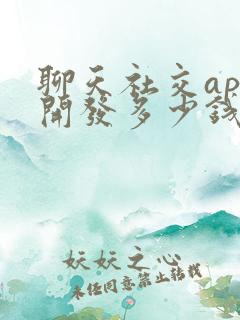 聊天社交ap
開發多少錢
妖妖之心
未经同意禁止转载